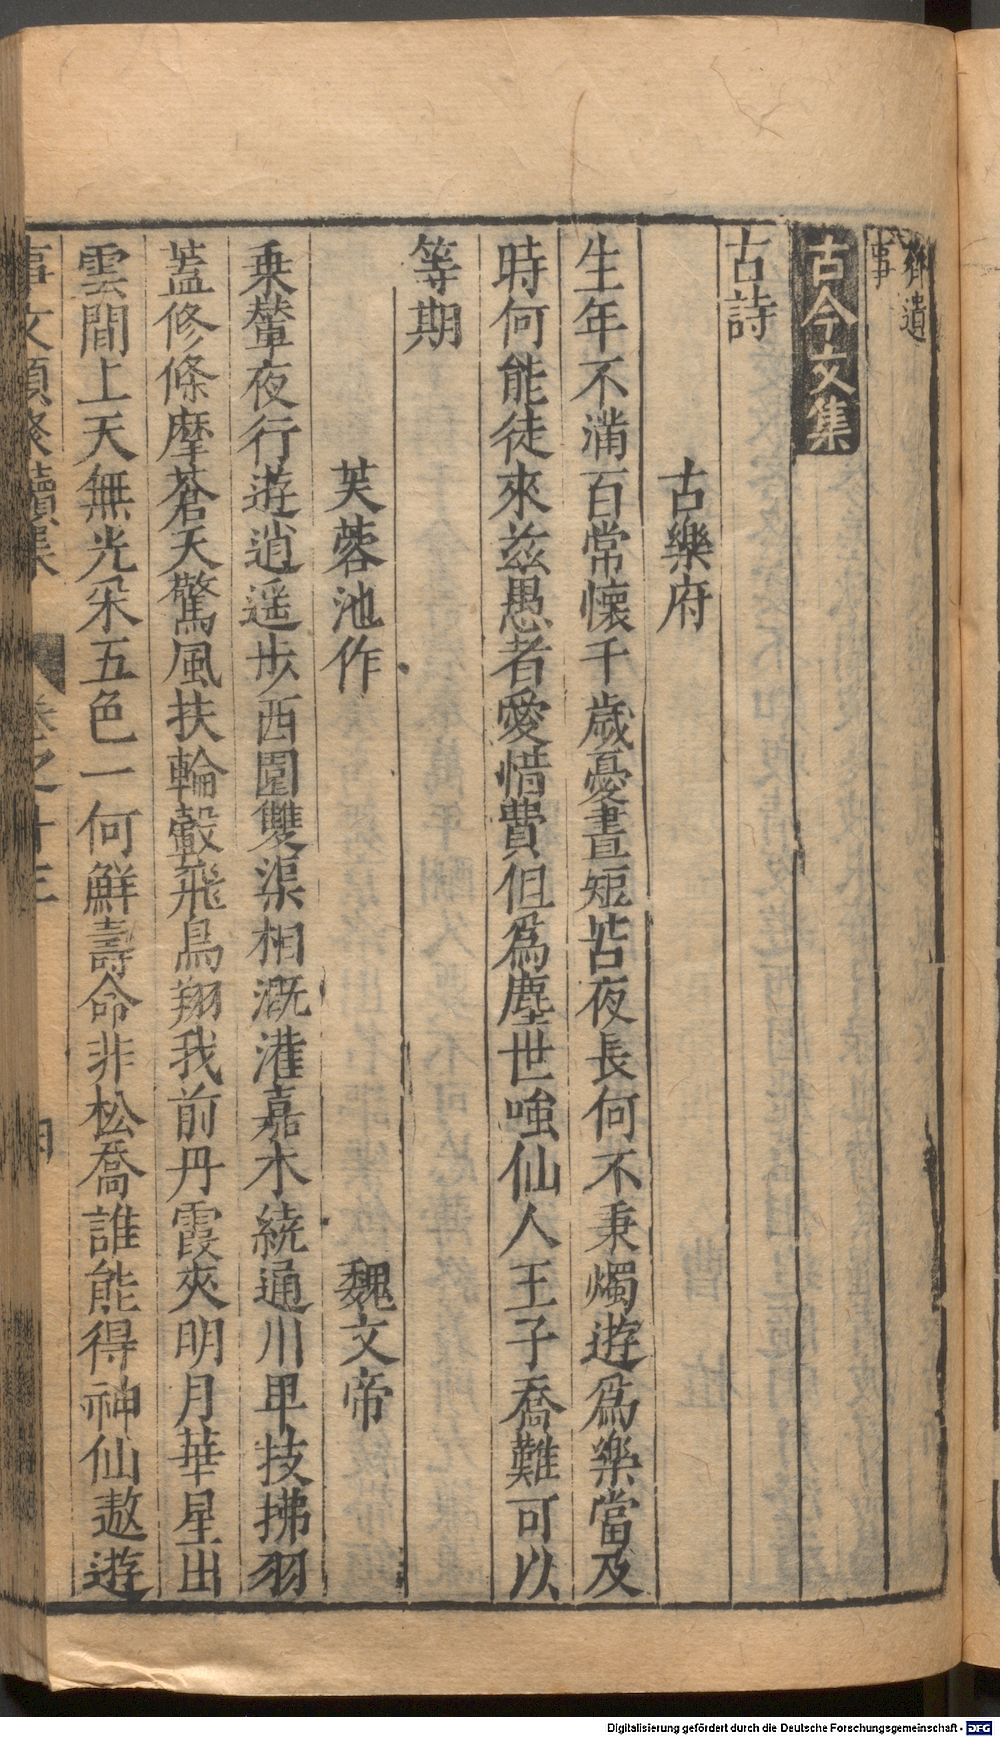 齊遺
事
古今文集
古詩
古樂府
生年不滿百常懷千歲憂晝短苦夜長何不秉燭遊爲樂當及
時何能徒來兹愚者愛惜費但爲塵世嗤仙人王子喬難可以
等期
芙蓉池作 魏文帝
乘輦夜行遊逍遥步西園雙渠相溉灌嘉木繞通川卑枝拂羽
蓋修條摩蒼天驚風扶輪轂飛鳥翔我前丹霞夾明月華星出
雲間上天無光采五色一何鮮壽命非松喬誰能得神仙遨遊
事文類聚續集 卷之十三 四
Digitalisierung gefördert durch die Deutsche Forschungsgemeinschaft - DFG